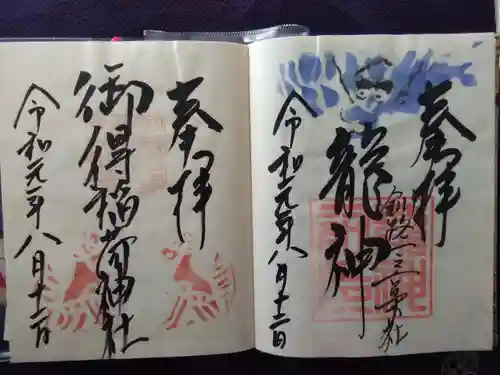 奉拝
龍神
釧路一之宮社
令和元年八月十二日
奉拝
御得稲荷神社
令和元年八月十二日